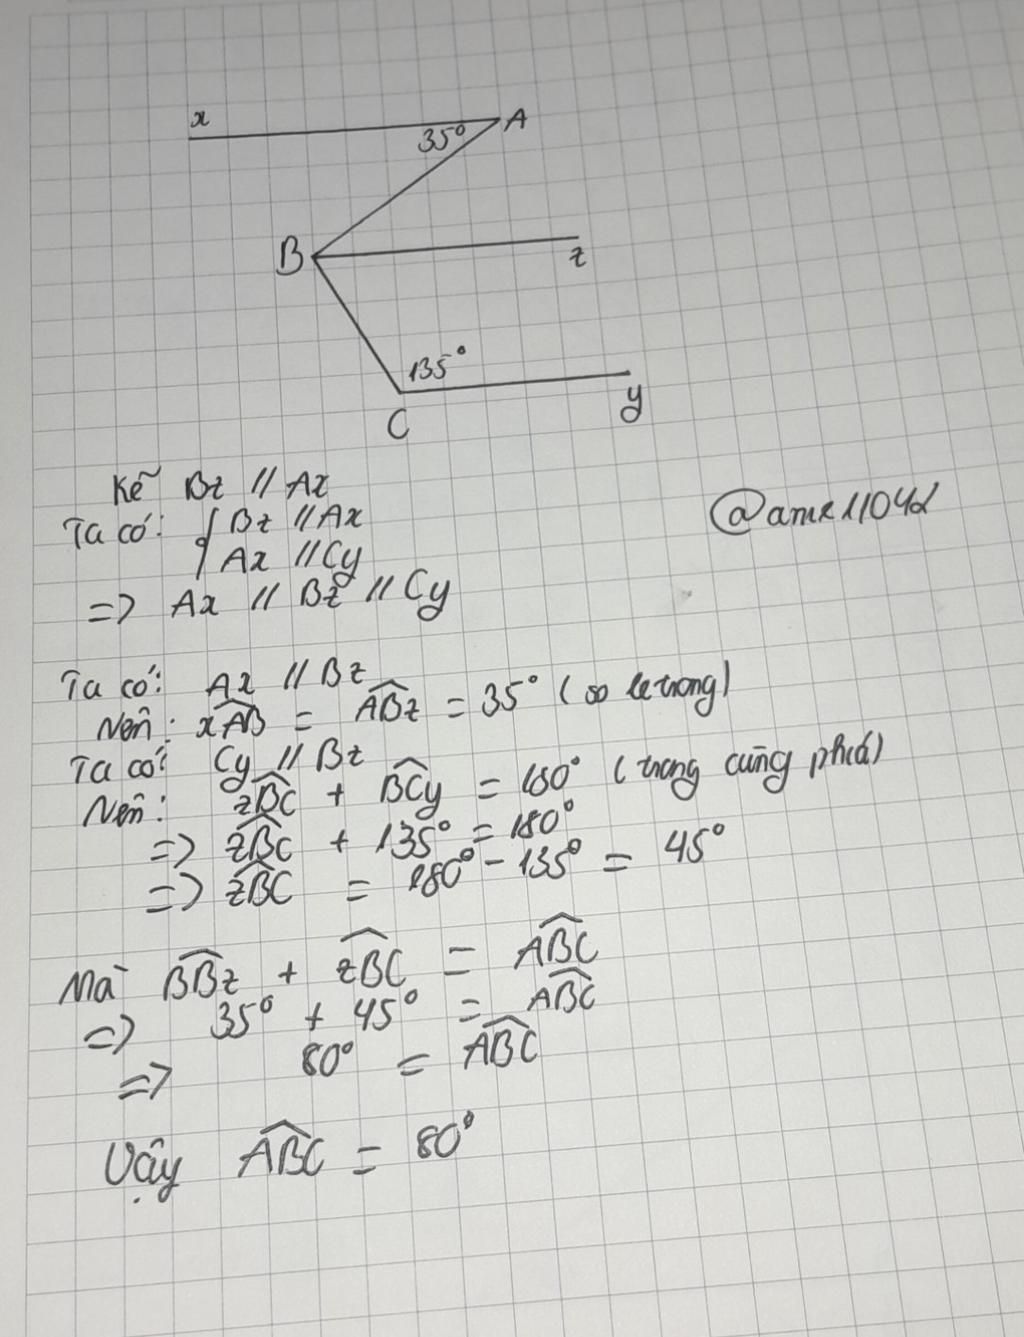 x
35° A
B
z
135°
C
y
Kẻ Bz // Ax
@ame11042
Ta có: { Bz // Ax
Ax // Cy
=> Ax // Bz // Cy
Ta có: Ax // Bz
Nên: xAB = ABz = 35° (so le trong)
Ta có: Cy // Bz
Nên: zBC + BCy = 180° (trong cùng phía)
=> zBC + 135° = 180°
=> zBC = 180° - 135° = 45°
Mà BBz + zBC = ABC
=> 35° + 45° = ABC
=> 80° = ABC
Vậy ABC = 80°